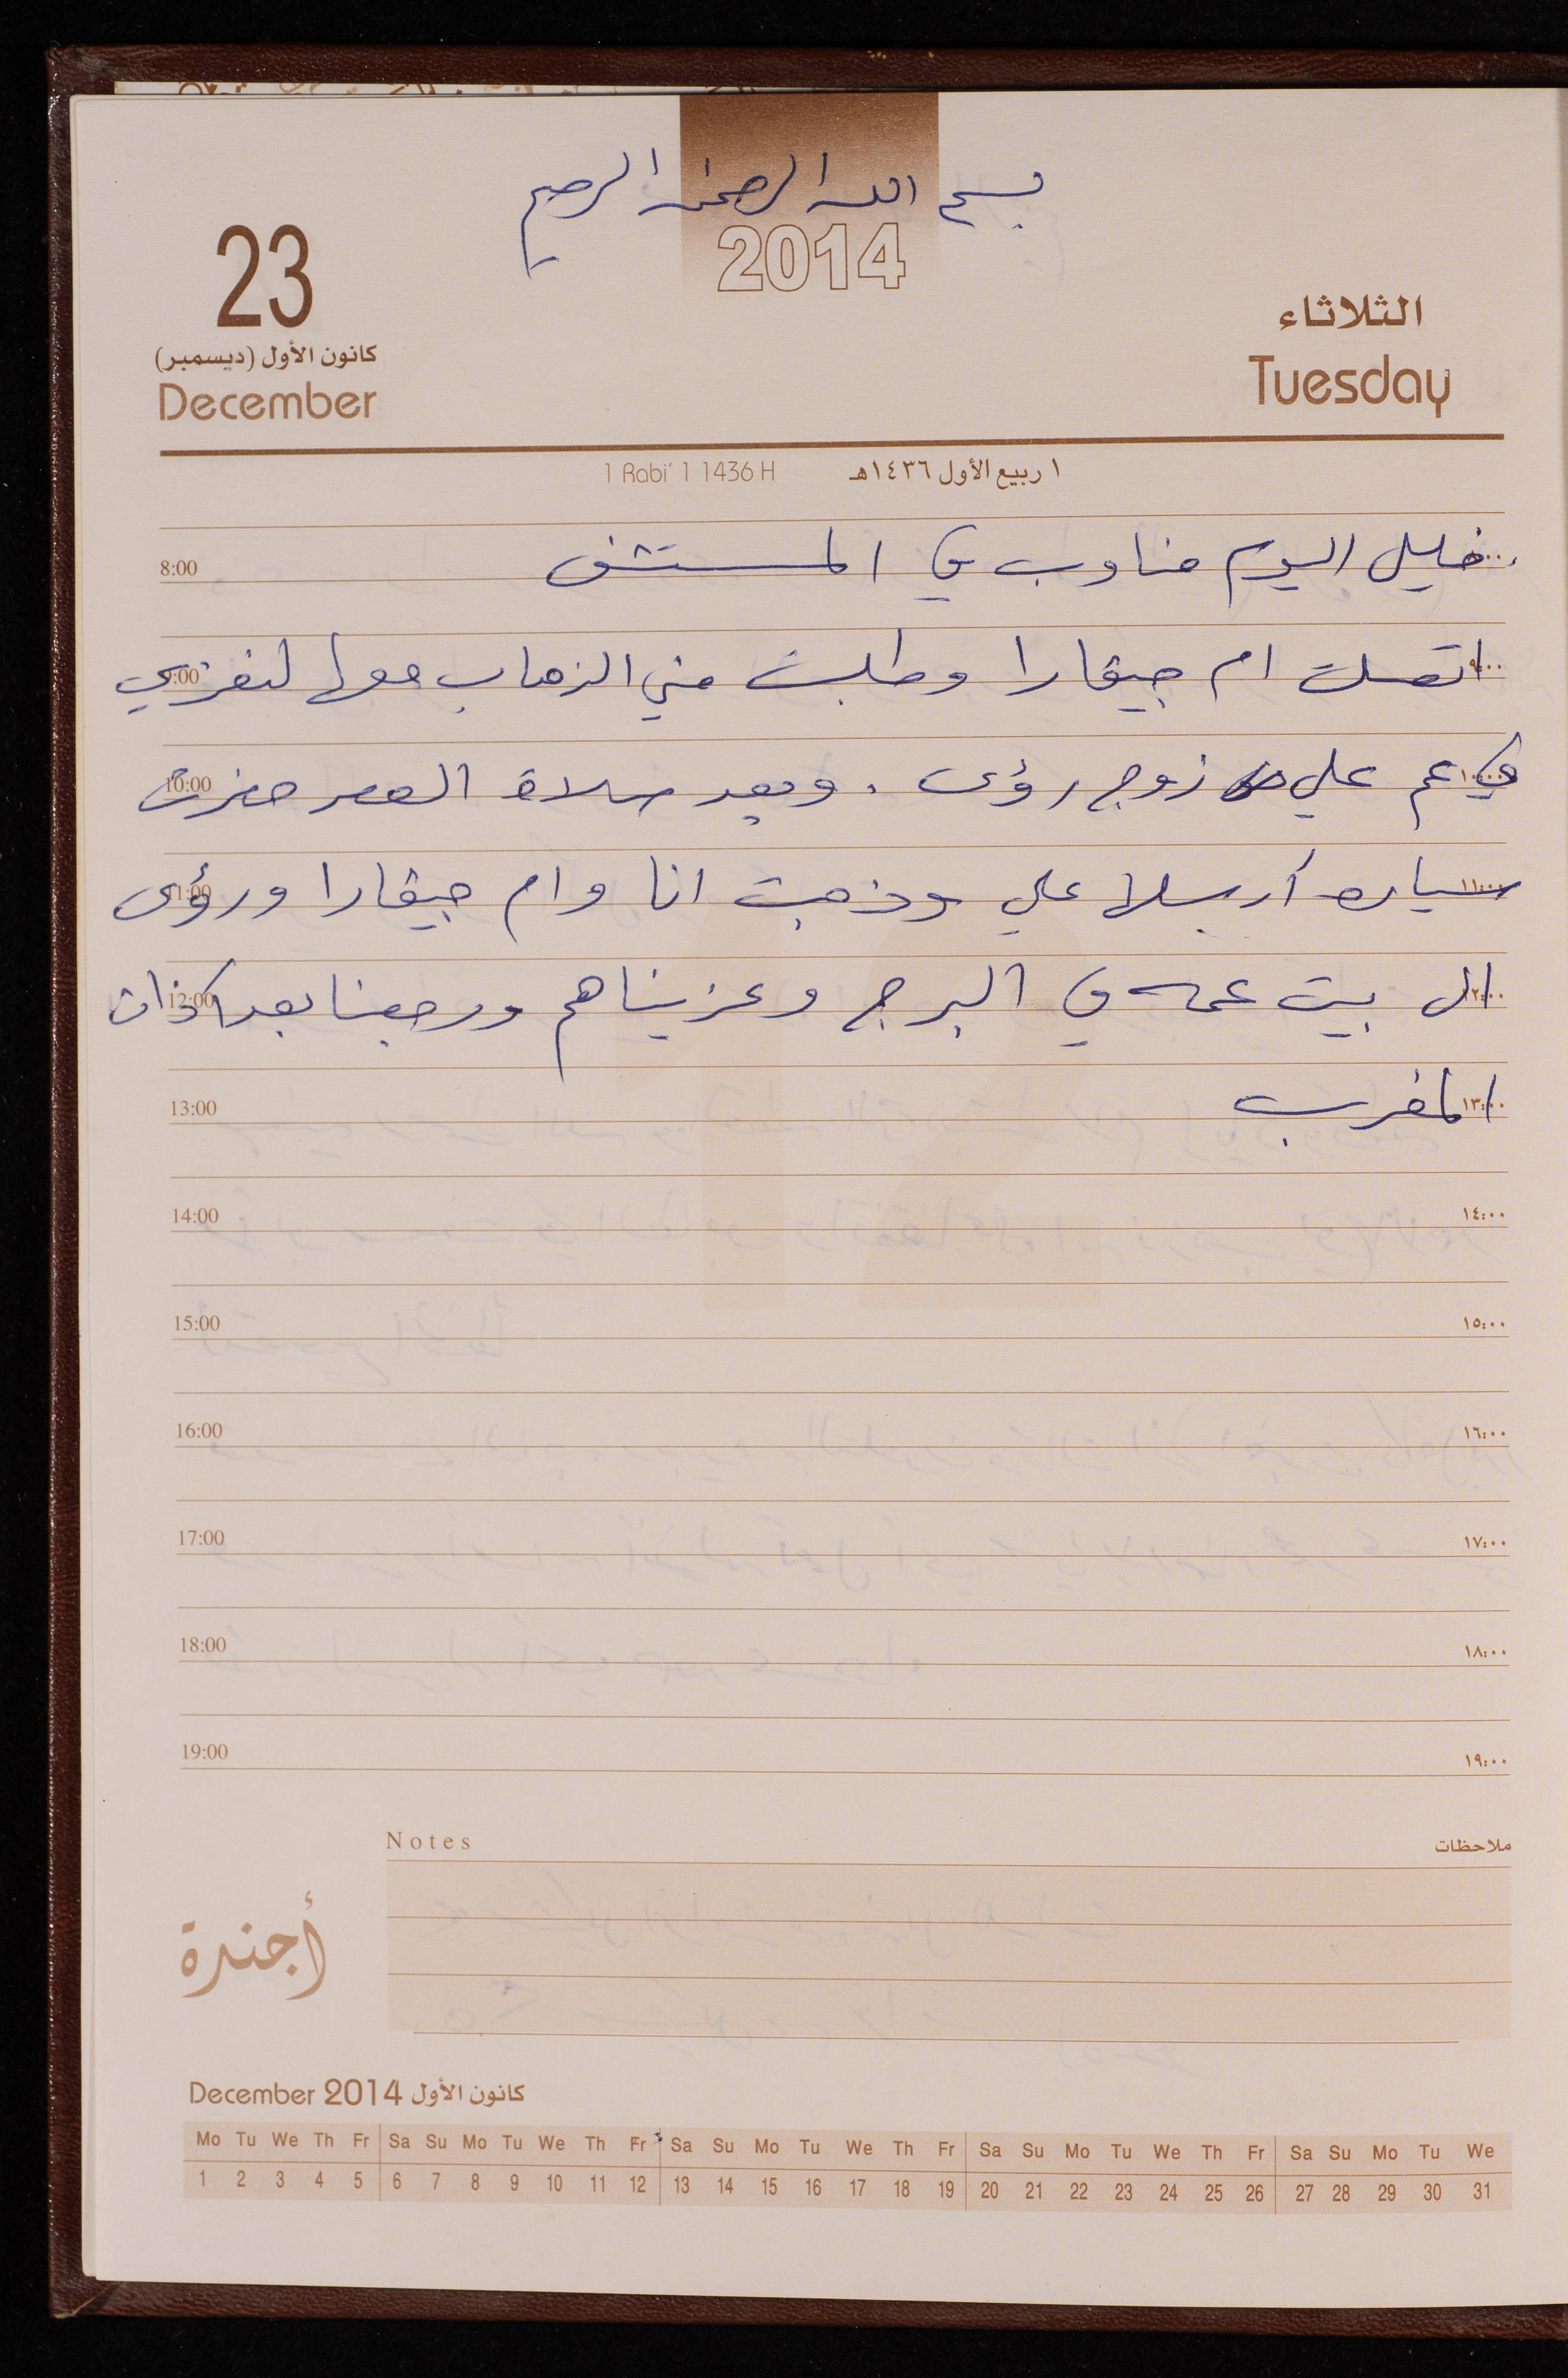 بسم الله الرحمن الرحيم
2014
23
كانون الأول (ديسمبر)
December
الثلاثاء
Tuesday
1 Rabi' 1 1436 H
١ ربيع الأول ١٤٣٦هـ
8:00 خليل اليوم مناوب في المستشفى
9:00 اتصلت ام جيفارا وطلبت مني الذهاب معها لنعزي ٩:٠٠
10:00 في عم علي زوج رؤى . وبعد صلاة العصر حضرت ١٠:٠٠
11:00 سياره أرسلها علي وذهبت انا وام جيفارا ورؤى ١١:٠٠
12:00 الى بيت عمه في البرج وعزيناهم ورجعنا بعد اذان ١٢:٠٠
13:00 المغرب ١٣:٠٠
14:00 ١٤:٠٠
15:00 ١٥:٠٠
16:00 ١٦:٠٠
17:00 ١٧:٠٠
18:00 ١٨:٠٠
19:00 ١٩:٠٠
Notes ملاحظات
أجندة
December 2014 كانون الأول
Mo Tu We Th Fr Sa Su Mo Tu We Th Fr Sa Su Mo Tu We Th Fr Sa Su Mo Tu We Th Fr Sa Su Mo Tu We
1 2 3 4 5 6 7 8 9 10 11 12 13 14 15 16 17 18 19 20 21 22 23 24 25 26 27 28 29 30 31